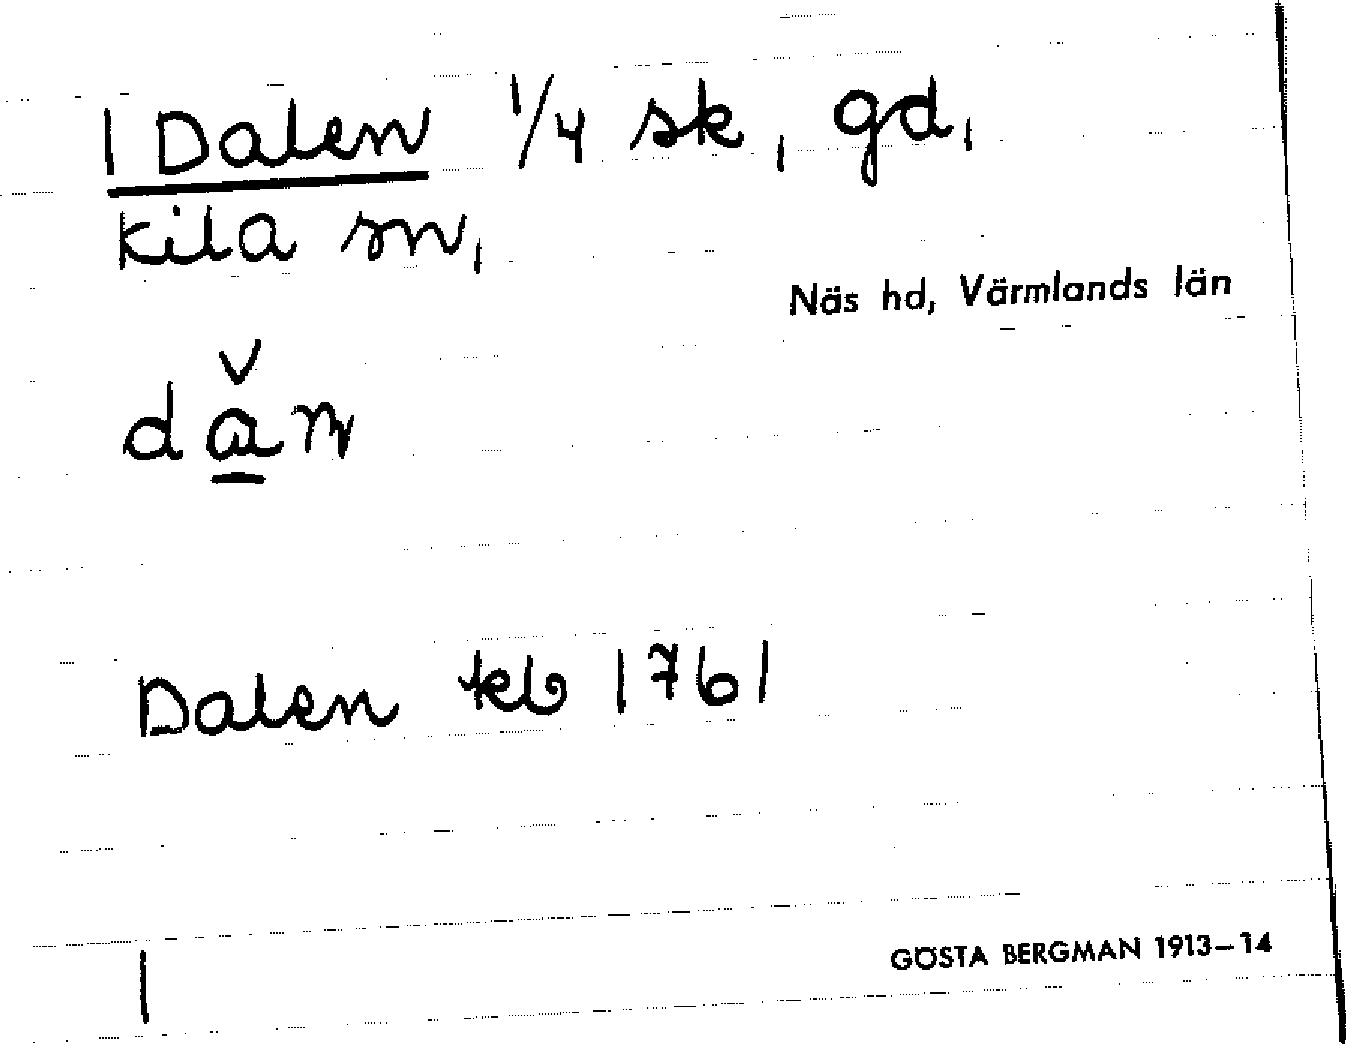 1 Dalen 1/4 sk, gd,
Kila sn,
Näs hd, Värmlands län
dǎ̱n
Dalen kb 1761
1
GÖSTA BERGMAN 1913–14